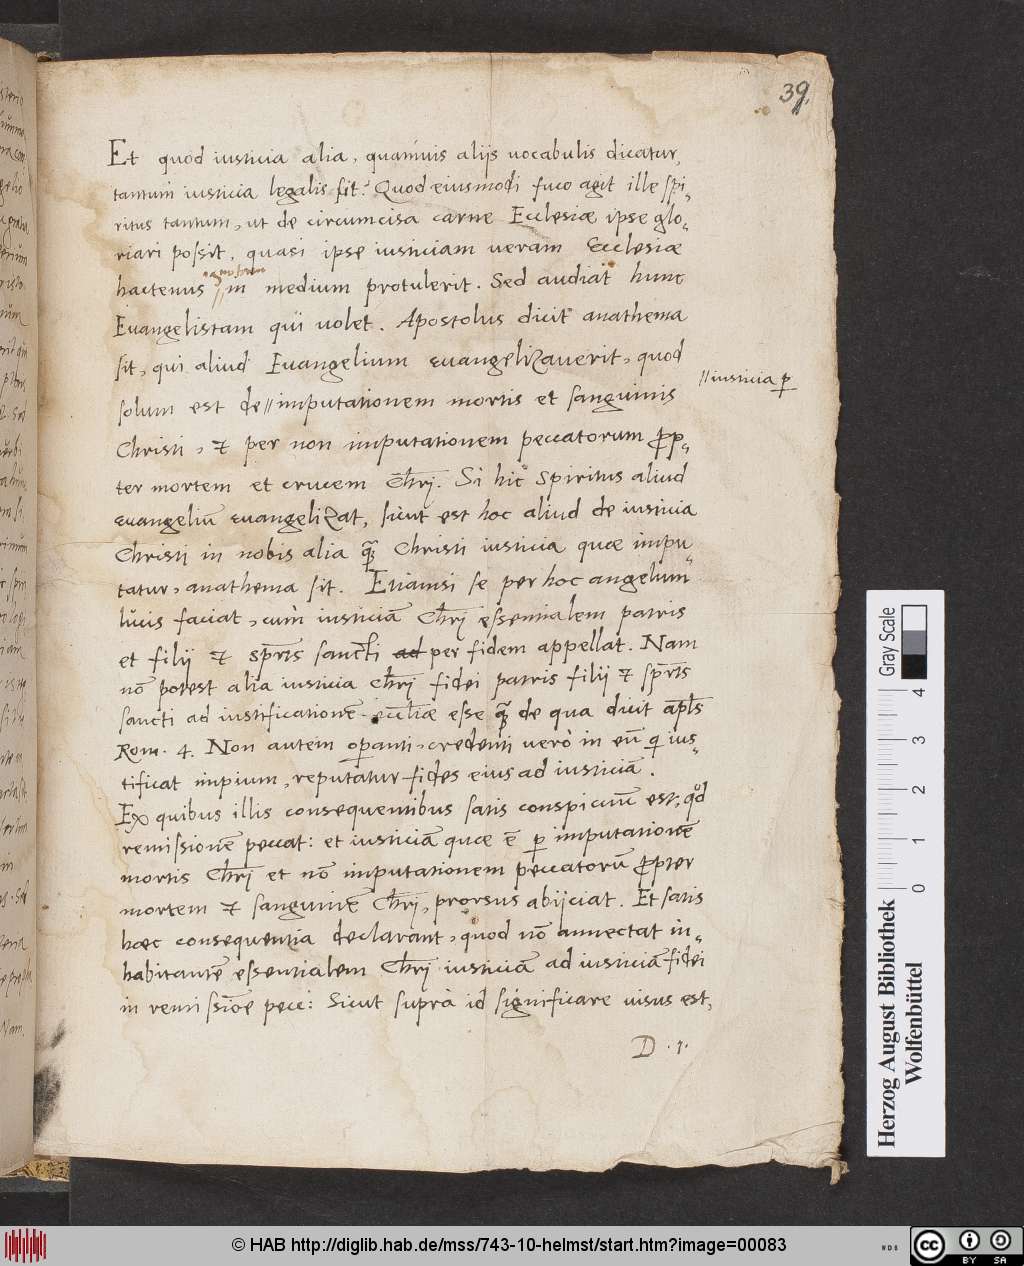 39.
Et quod iusticia alia, quamuis alijs uocabulis dicatur,
tantum iusticia legalis sit? Quod eiusmodi fuco agit ille spi„
ritus tantum, ut de circumcisa carne Ecclesiæ ipse glo„
riari possit, quasi ipse iusticiam ueram Ecclesiæ
hactenus // in medium protulerit. Sed audiat hunc
Euangelistam qui uolet. Apostolus dicit anathema
sit, qui aliud Euangelium euangelizauerit, quod
solum est de // imputationem mortis et sanguinis
// iusticia p̱
Christi, & per non imputationem peccatorum ꝓp„
ter mortem et crucem Chr̃j. Si hic Spiritus aliud
euangeliū euangelizat, sicut est hoc aliud de iusticia
Christj in nobis alia q̃ȝ Christi iusticia quæ impu„
tatur, anathema sit. Etiamsi se per hoc angelum
lucis faciat, cùm iusticiā Chr̃j essentialem patris
et filij & spr̃ts sancti ad per fidem appellat. Nam
nō potest alia iusticia Chr̃j fidei patris filij & spr̃ts
sancti ad iustificationē eccl̃iæ esse q̃ȝ de qua dicit apl̃s
Rom. 4. Non autem opanti, credenti uerò in eū q ius„
tificat impium, reputatur fides eius ad iusticiā.
Ex quibus illis consequentibus satis conspicuū est, qd
remissionē peccat: et iusticiā quæ ē p̱ imputationē
mortis Chr̃j et nō imputationem peccatorū ꝓpter
mortem & sanguinē Chr̃j, prorsus abijciat. Et satis
hæc consequentia declarant, quod nō annectat in„
habitantē essentialem Chr̃j iusticiā ad iusticiā fidei
in remissiōe pecc: Sicut suprà id significare uisus est,
D. 1.
Herzog August Bibliothek
Wolfenbüttel
0 1 2 3 4
Gray Scale
© HAB http://diglib.hab.de/mss/743-10-helmst/start.htm?image=00083
cc BY SA